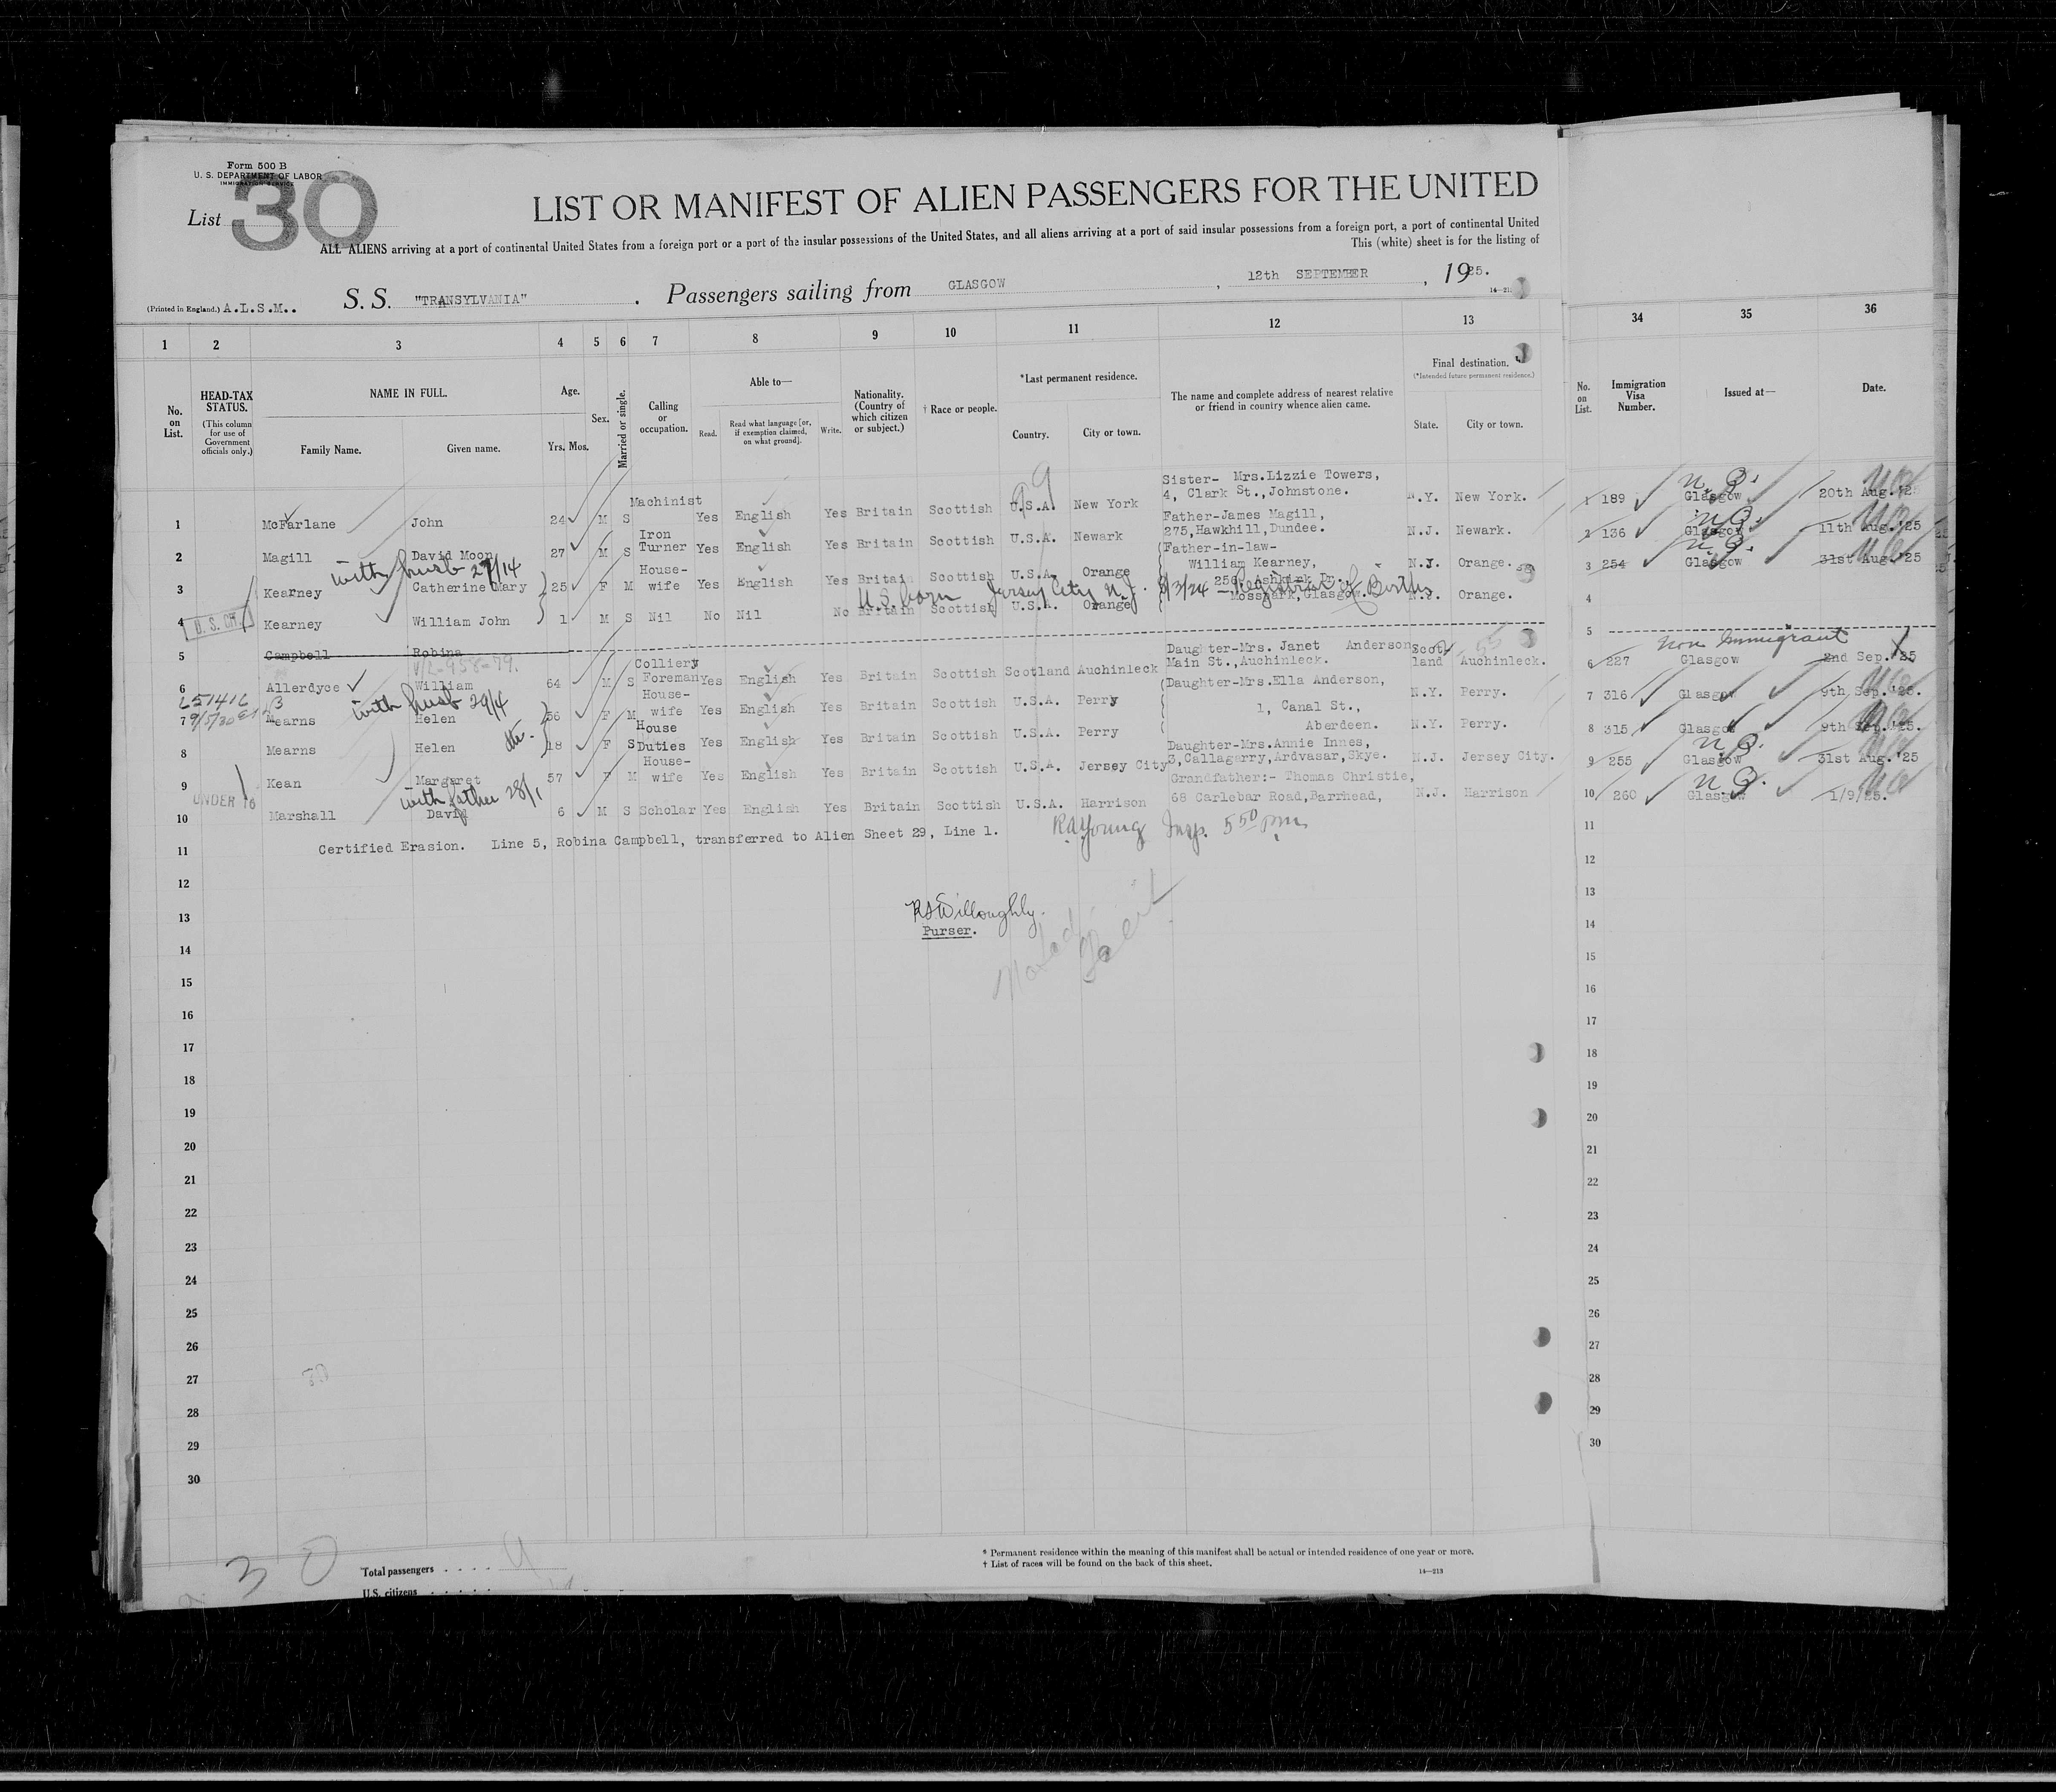 Form 500 B
U. S. DEPARTMENT OF LABOR
IMMIGRATION SERVICE
List 30
LIST OR MANIFEST OF ALIEN PASSENGERS FOR THE UNITED
ALL ALIENS arriving at a port of continental United States from a foreign port or a port of the insular possessions of the United States, and all aliens arriving at a port of said insular possessions from a foreign port, a port of continental United
This (white) sheet is for the listing of
(Printed in England.) A.L.S.M.. S. S. "TRANSYLVANIA" . Passengers sailing from GLASGOW , 12th SEPTEMBER , 1925.
1 2 3 4 5 6 7 8 9 10 11 12 13 34 35 36
No. on List.
HEAD-TAX STATUS.
(This column for use of Government officials only.)
NAME IN FULL.
Family Name. Given name.
Age.
Yrs. Mos.
Sex.
Married or single.
Calling or occupation.
Able to—
Read. Read what language [or, if exemption claimed, on what ground]. Write.
Nationality. (Country of which citizen or subject.)
† Race or people.
*Last permanent residence.
Country. City or town.
The name and complete address of nearest relative or friend in country whence alien came.
Final destination.
(*Intended future permanent residence.)
State. City or town.
No. on List.
Immigration Visa Number.
Issued at—
Date.
1 McFarlane John 24 M S Machinist Yes English Yes Britain Scottish U.S.A. New York Sister- Mrs.Lizzie Towers, 4, Clark St.,Johnstone. N.Y. New York. 1 189 Glasgow 20th Aug.'25
2 Magill David Moon 27 M S Iron Turner Yes English Yes Britain Scottish U.S.A. Newark Father-James Magill, 275,Hawkhill,Dundee. N.J. Newark. 2 136 Glasgow 11th Aug.'25
with husb 29/14
3 Kearney Catherine Mary 25 F M House-wife Yes English Yes Britain Scottish U.S.A. Orange Father-in-law- William Kearney, 256, Ashkirk Dr. Mosspark,Glasgow. N.J. Orange. 3 254 Glasgow 31st Aug.'25
U.S. born Jersey City N.J. 8/3/24 — Registrar of Births
U. S. CIT.
4 Kearney William John 1 M S Nil No Nil No Britain Scottish U.S.A. Orange N.J. Orange. 4
5 Campbell Robina 5
V/L-958-79.
Non Immigrant
6 Allerdyce William 64 M S Colliery Foreman Yes English Yes Britain Scottish Scotland Auchinleck Daughter-Mrs. Janet Anderson, Main St.,Auchinleck. Scotland Auchinleck. 6 227 Glasgow 2nd Sep.'25
with husb 29/4
7 Mearns Helen 56 F M House-wife Yes English Yes Britain Scottish U.S.A. Perry Daughter-Mrs.Ella Anderson, 1, Canal St., Aberdeen. N.Y. Perry. 7 316 Glasgow 9th Sep.'25.
8 Mearns Helen 18 F S House Duties Yes English Yes Britain Scottish U.S.A. Perry N.Y. Perry. 8 315 Glasgow 9th Sep.'25.
9 Kean Margaret 57 F M House-wife Yes English Yes Britain Scottish U.S.A. Jersey City Daughter-Mrs.Annie Innes, 3,Callagerry,Ardvasar,Skye. N.J. Jersey City. 9 255 Glasgow 31st Aug.'25
UNDER 16
with father 28/1
10 Marshall David 6 M S Scholar Yes English Yes Britain Scottish U.S.A. Harrison Grandfather:- Thomas Christie, 68 Carlebar Road,Barrhead, N.J. Harrison 10 260 Glasgow 1/9/25.
11 Certified Erasion. Line 5, Robina Campbell, transferred to Alien Sheet 29, Line 1. 11
R A Young Insp. 5 50 pm
12 12
13 13
RSWilloughby.
Purser.
14 14
15 15
16 16
17 17
18 18
19 19
20 20
21 21
22 22
23 23
24 24
25 25
26 26
27 27
28 28
29 29
30 30
30
Total passengers . . . .
U.S. citizens . . . . .
* Permanent residence within the meaning of this manifest shall be actual or intended residence of one year or more.
† List of races will be found on the back of this sheet.
14—213